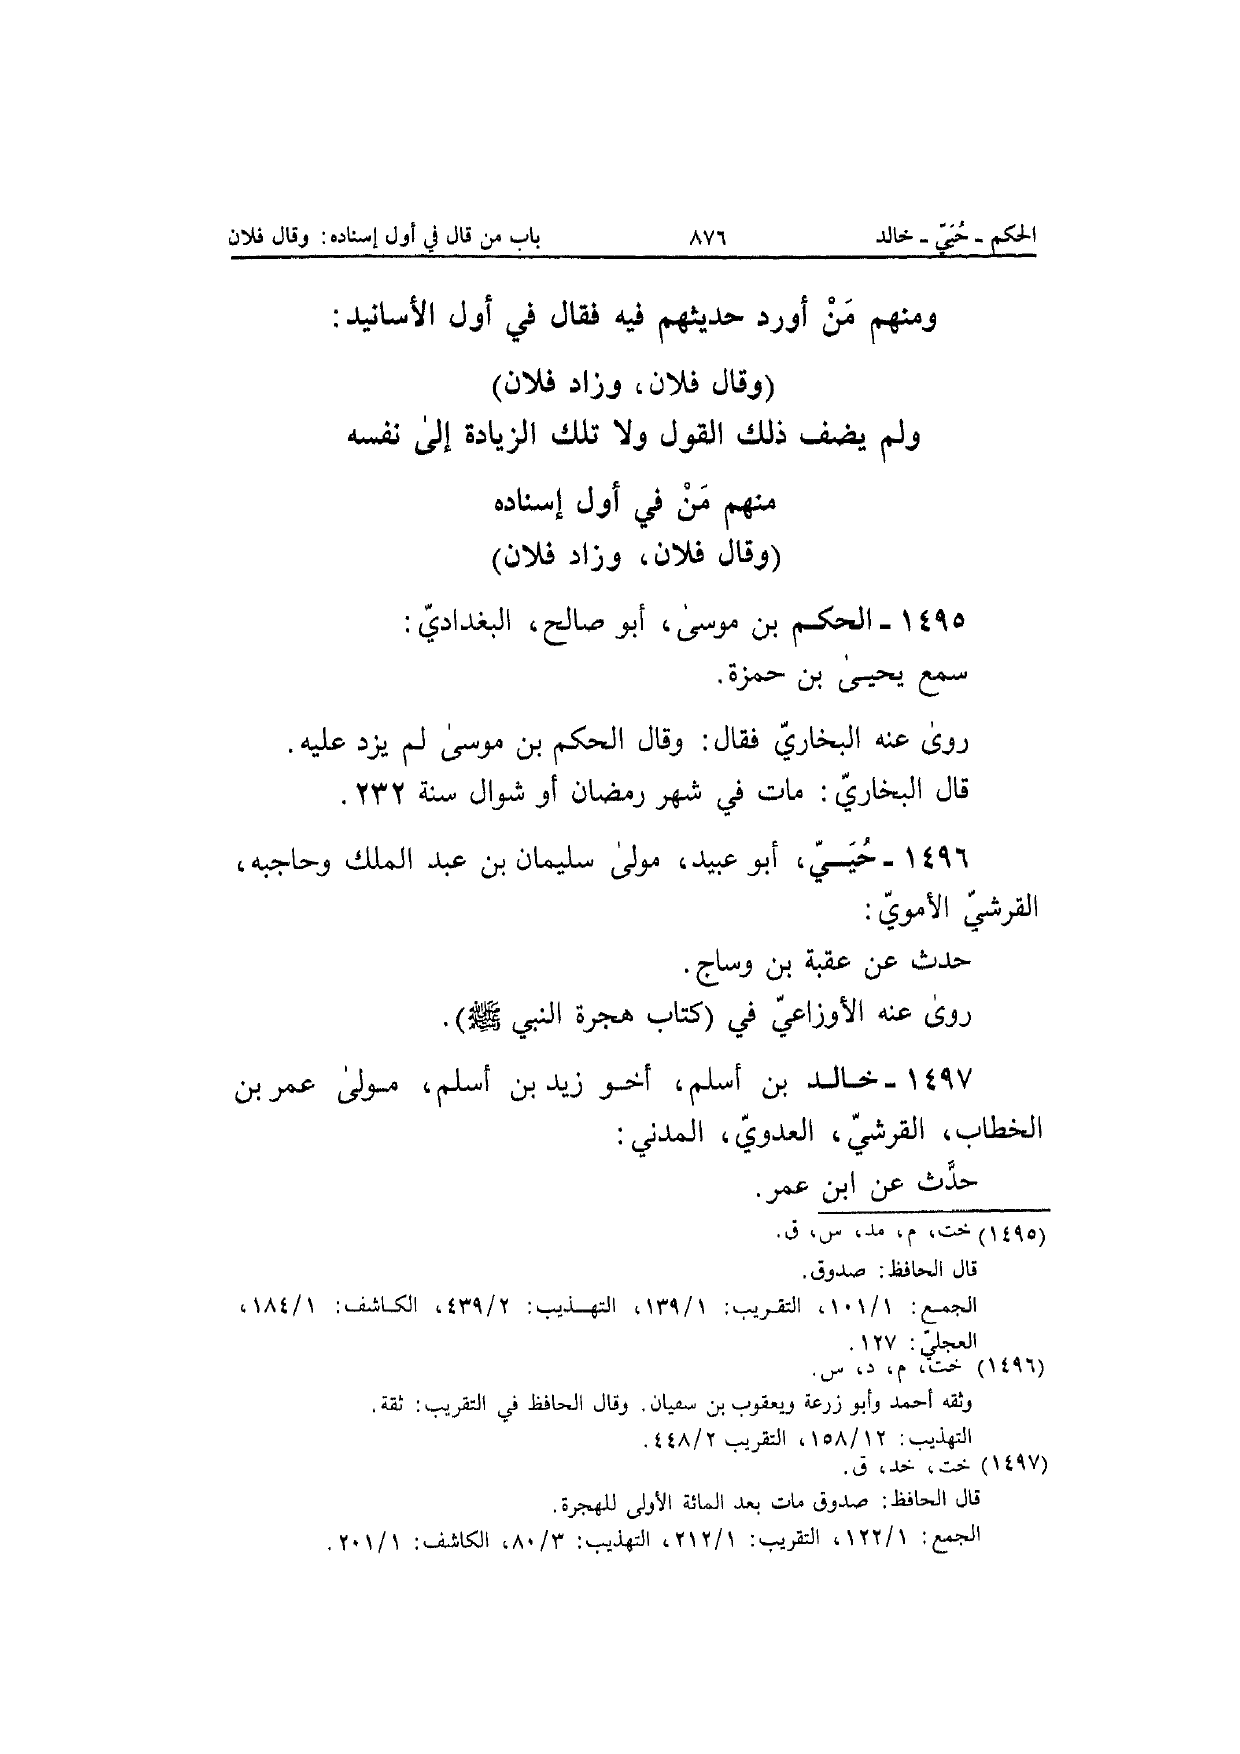 الحكم ـ حُيَيّ ـ خالد ٨٧٦ باب من قال في أول إسناده: وقال فلان
ومنهم مَنْ أورد حديثهم فيه فقال في أول الأسانيد:
(وقال فلان، وزاد فلان)
ولم يضف ذلك القول ولا تلك الزيادة إلىٰ نفسه
منهم مَنْ في أول إسناده
(وقال فلان، وزاد فلان)
١٤٩٥ ـ الحكم بن موسىٰ، أبو صالح، البغداديّ:
سمع يحيىٰ بن حمزة.
روىٰ عنه البخاريّ فقال: وقال الحكم بن موسىٰ لم يزد عليه.
قال البخاريّ: مات في شهر رمضان أو شوال سنة ٢٣٢.
١٤٩٦ ـ حُيَيّ، أبو عبيد، مولىٰ سليمان بن عبد الملك وحاجبه،
القرشيّ الأمويّ:
حدث عن عقبة بن وساج.
روىٰ عنه الأوزاعيّ في (كتاب هجرة النبي ﷺ).
١٤٩٧ ـ خالد بن أسلم، أخو زيد بن أسلم، مولىٰ عمر بن
الخطاب، القرشيّ، العدويّ، المدني:
حدَّث عن ابن عمر.
(١٤٩٥) خت، م، مد، س، ق.
قال الحافظ: صدوق.
الجمع: ١/١٠١، التقريب: ١/١٣٩، التهذيب: ٢/٤٣٩، الكاشف: ١/١٨٤،
العجليّ: ١٢٧.
(١٤٩٦) خت، م، د، س.
وثقه أحمد وأبو زرعة ويعقوب بن سفيان. وقال الحافظ في التقريب: ثقة.
التهذيب: ١٢/١٥٨، التقريب ٢/٤٤٨.
(١٤٩٧) خت، خد، ق.
قال الحافظ: صدوق مات بعد المائة الأولى للهجرة.
الجمع: ١/١٢٢، التقريب: ١/٢١٢، التهذيب: ٣/٨٠، الكاشف: ١/٢٠١.